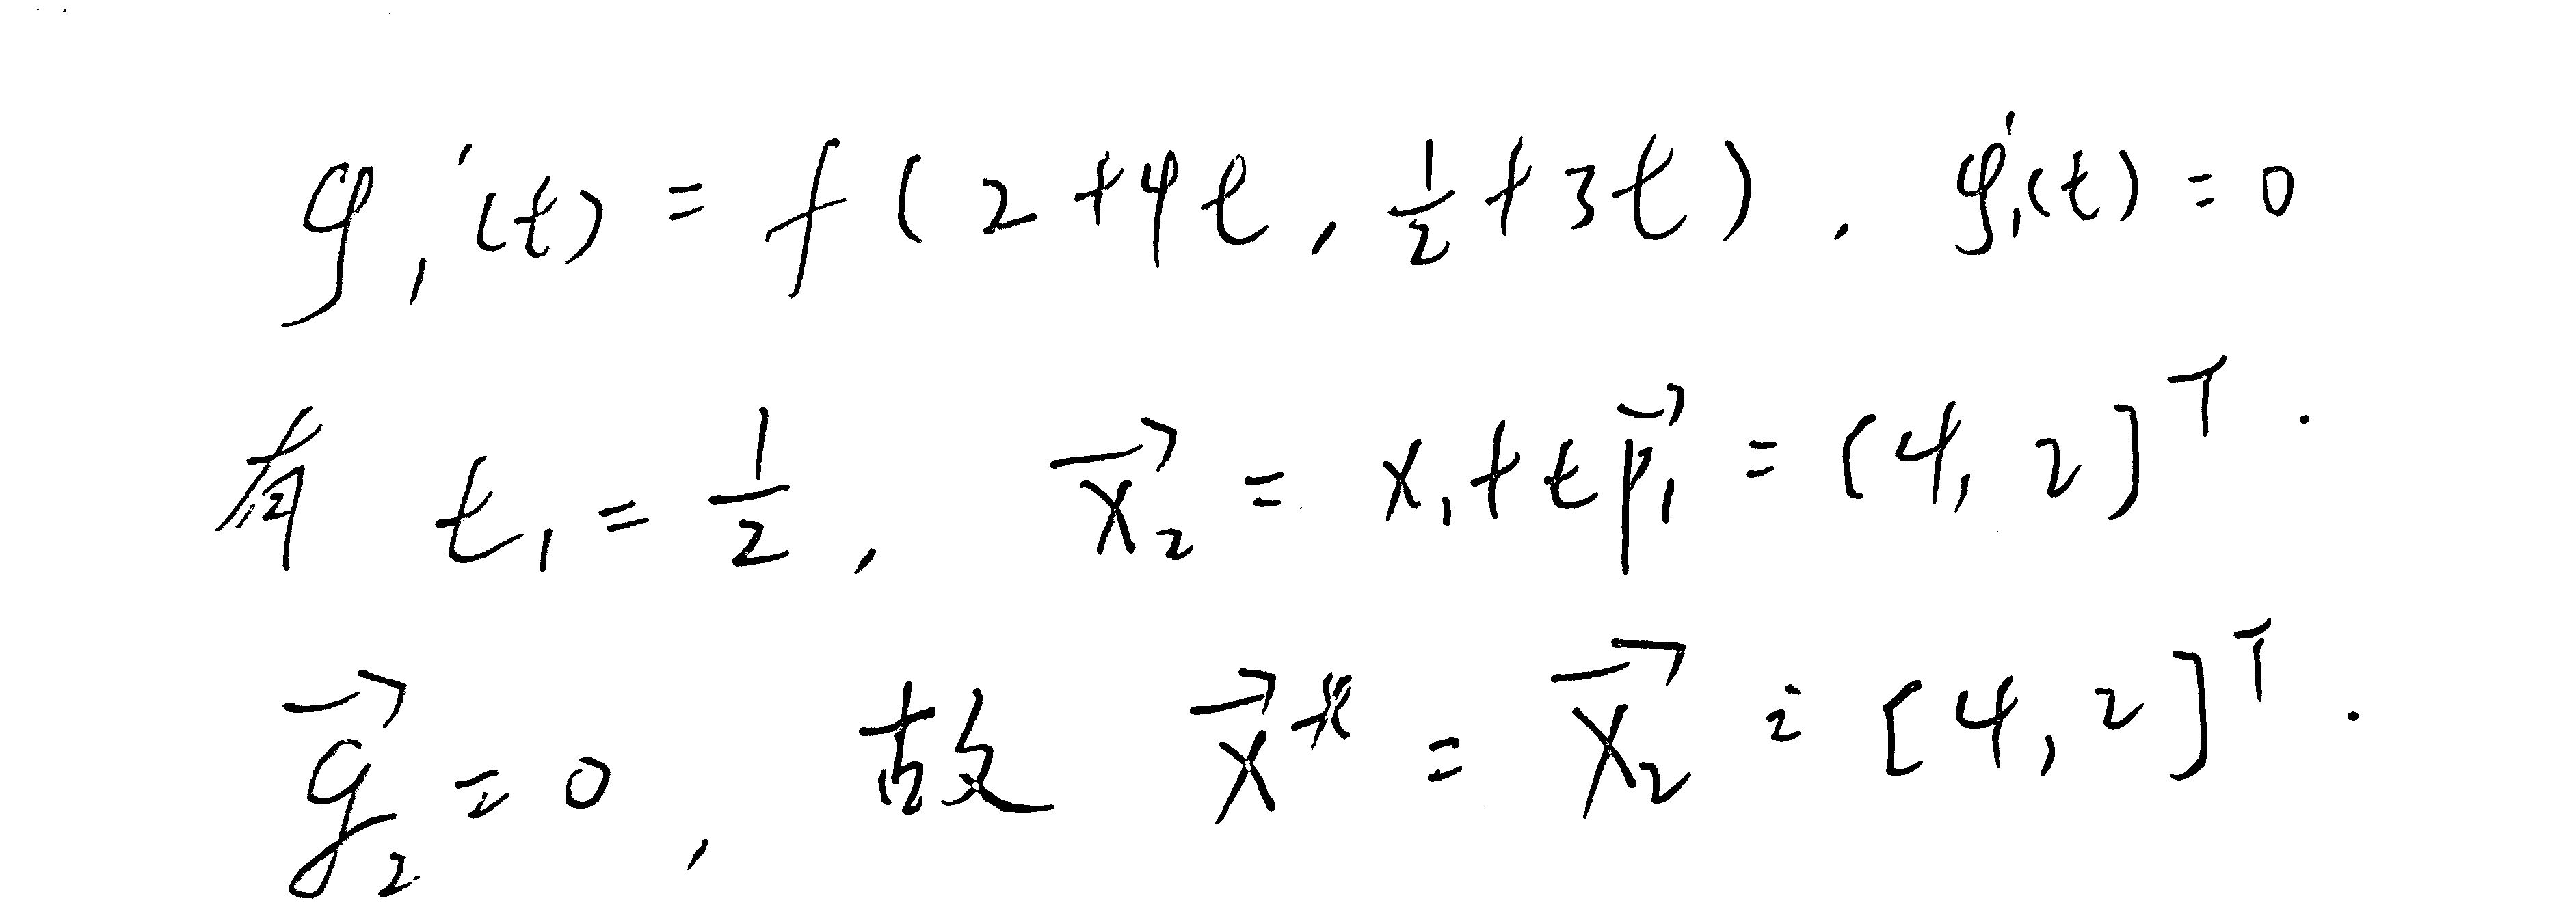 φ₁'(t) = f(2+4t, 1/2+3t). φ₁'(t) = 0
有 t₁ = 1/2, x⃗₂ = x₁+tp⃗₁ = [4, 2]ᵀ.
g⃗₂ = 0, 故 x⃗* = x⃗₂ = [4, 2]ᵀ.